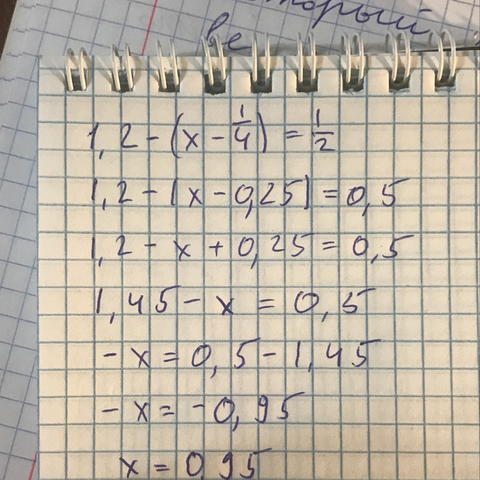 который
ве
1,2 - (x - 1/4) = 1/2
1,2 - (x - 0,25) = 0,5
1,2 - x + 0,25 = 0,5
1,45 - x = 0,5
- x = 0,5 - 1,45
- x = -0,95
x = 0,95